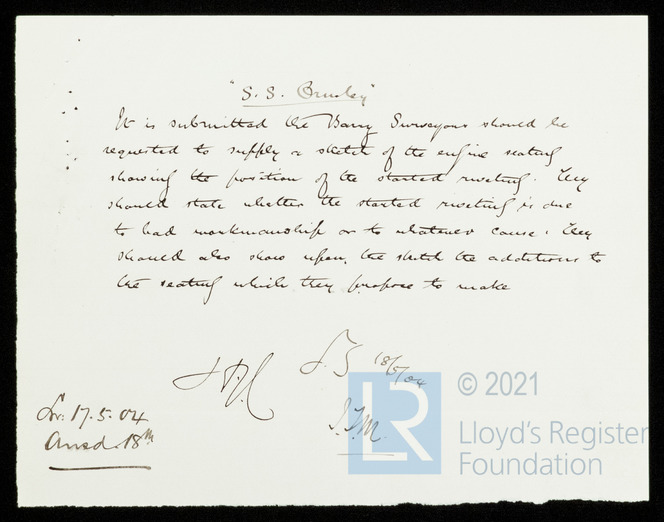 "S.S. Brinkley"
It is submitted the Barry Surveyors should be
requested to supply a sketch of the engine seating
showing the position of the started riveting. They
should state whether the started riveting is due
to bad workmanship or to whatever cause. They
should also show upon the sketch the additions to
the seating which they propose to make
18/5/04
J.F.M.
Lr. 17.5.04
Ansd. 18th
LR
© 2021
Lloyd's Register
Foundation